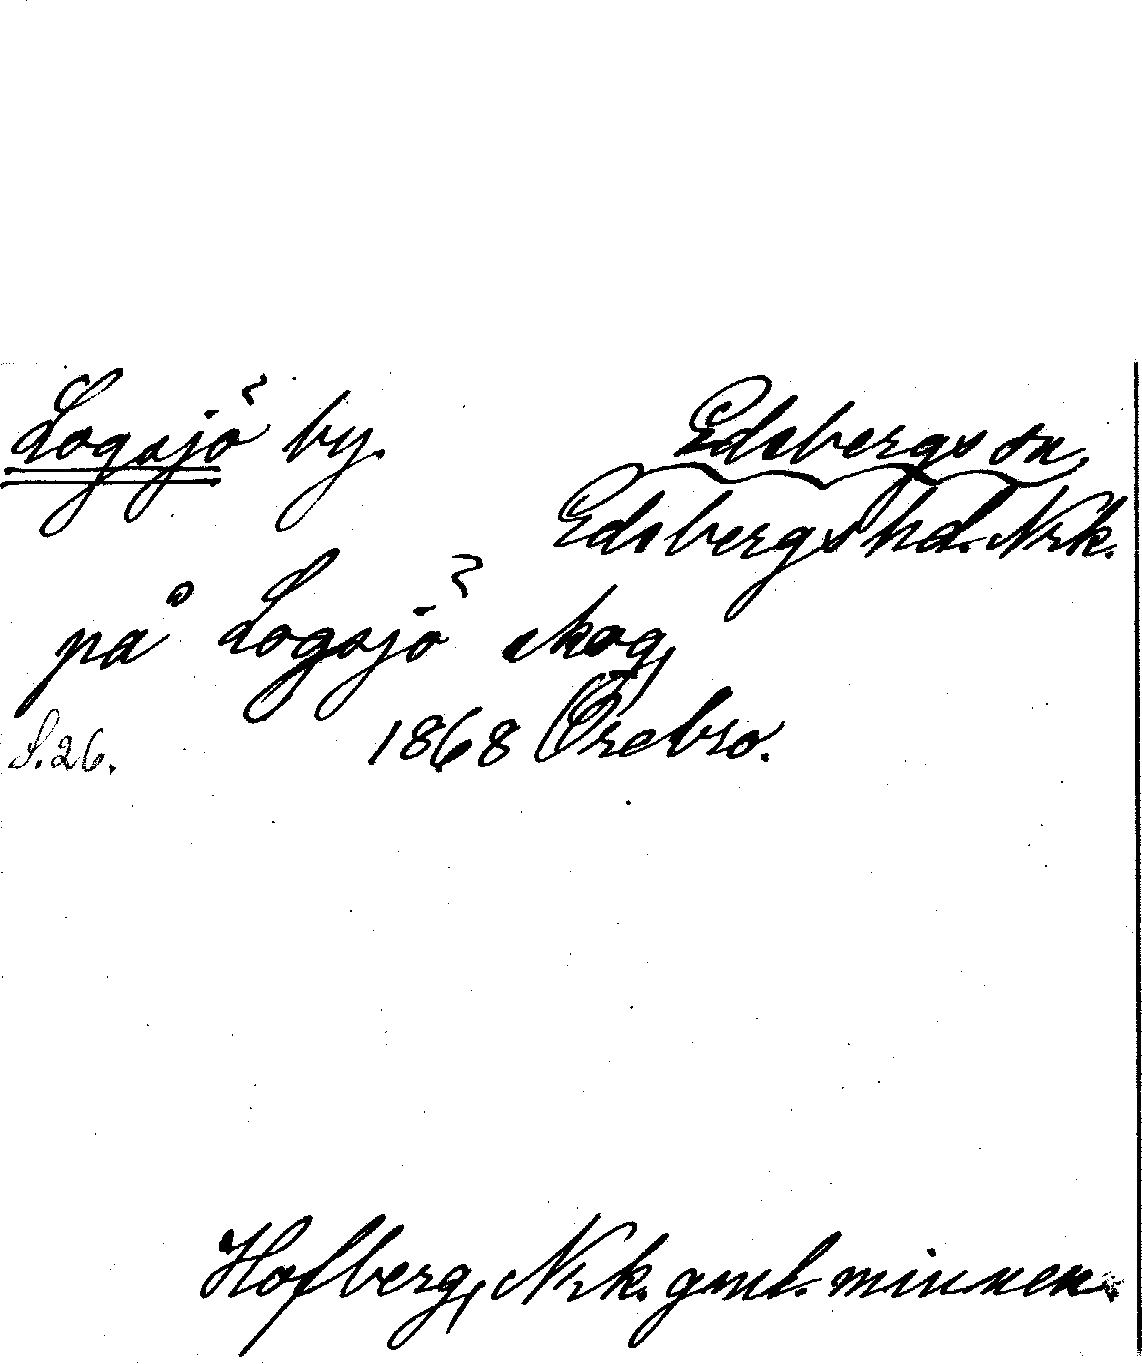 Logsjö by. Edsbergs sn,
Edsbergs hd. Nrk.
på Logsjö skog,
S. 26. 1868 Örebro.
Hofberg, Nrk. gml. minnen.